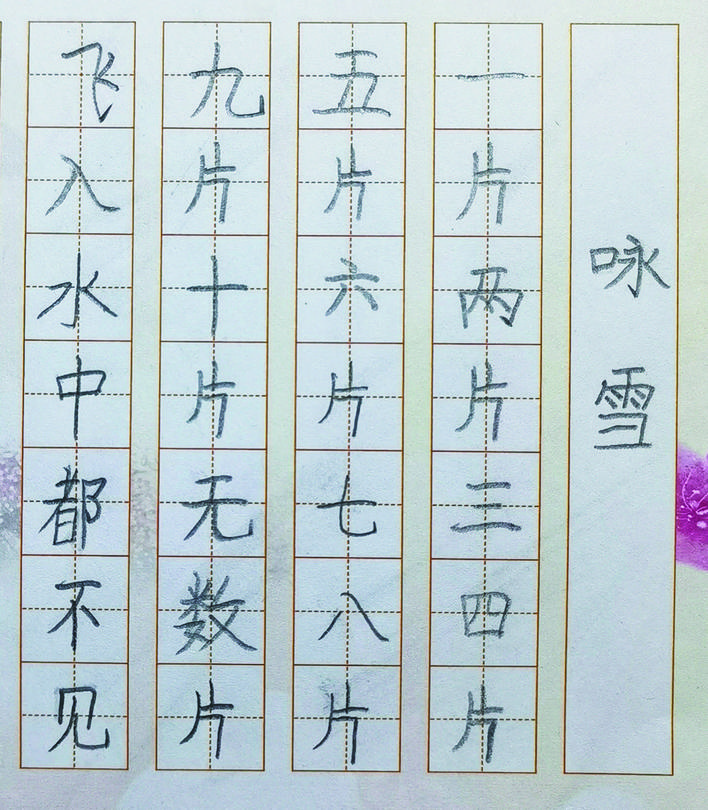 咏雪
一片两片三四片
五片六片七八片
九片十片无数片
飞入水中都不见